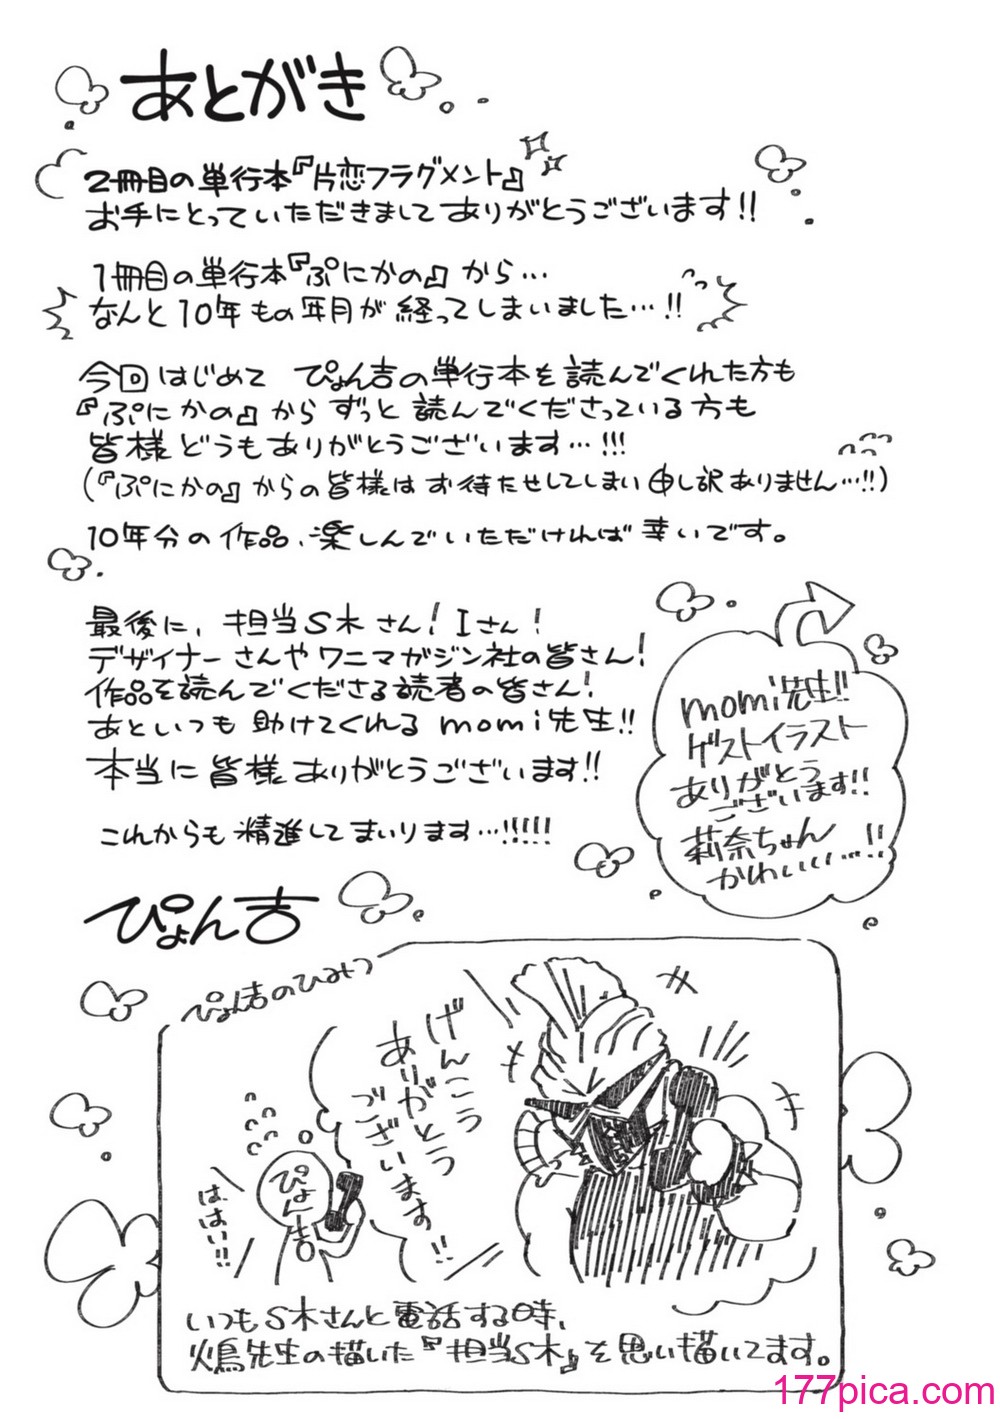 あとがき
2冊目の単行本『片恋フラグメント』
お手にとっていただきましてありがとうございます!!
1冊目の単行本『ぷにかの』から…
なんと10年もの年月が経ってしまいました…!!
今回はじめて ぴょん吉の単行本を読んでくれた方も
『ぷにかの』からずっと読んでくださっている方も
皆様どうもありがとうございます…!!!
(『ぷにかの』からの皆様はお待たせしてしまい申し訳ありません…!!)
10年分の作品、楽しんでいただければ幸いです。
最後に、担当S木さん! Iさん!
デザイナーさんやワニマガジン社の皆さん!
作品を読んでくださる読者の皆さん!
あといつも助けてくれるmomi先生!!
本当に皆様ありがとうございます!!
これからも精進してまいります…!!!!!
ぴょん吉
momi先生!!
ゲストイラスト
ありがとう
ございます!!
莉奈ちゃん
かわいい…!!
ぴょん吉のひみつ
げんこう
ありがとう
ございます!!
ぴょん吉
は、はい!!
いつもS木さんと電話する時、
火鳥先生の描いた『担当S木』を思い描いてます。
177pica.com